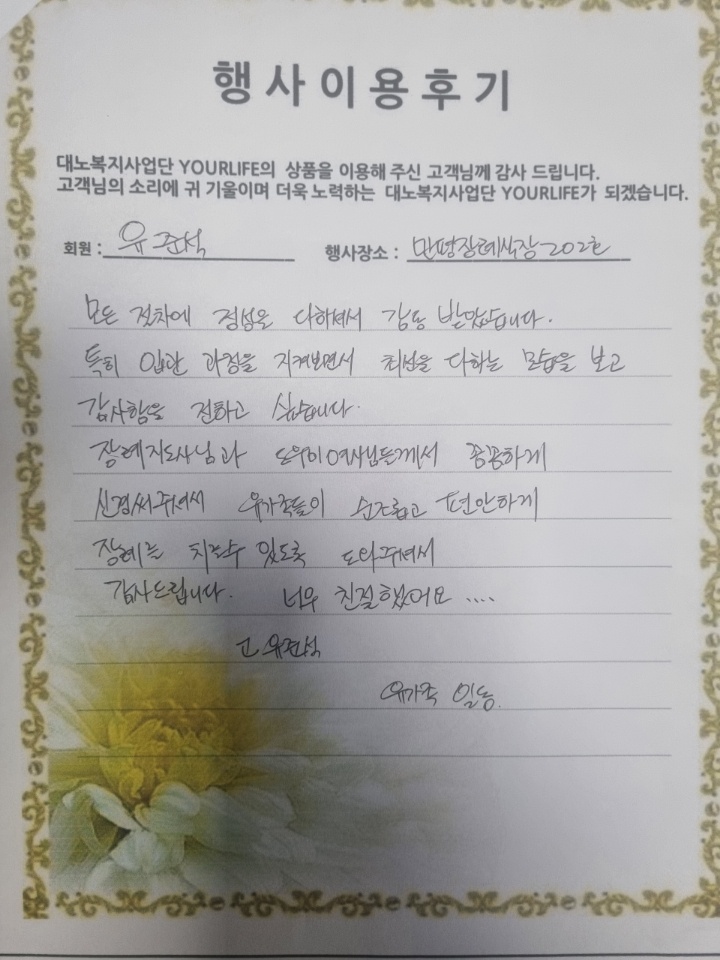 행사이용후기
대노복지사업단 YOURLIFE의 상품을 이용해 주신 고객님께 감사 드립니다.
고객님의 소리에 귀 기울이며 더욱 노력하는 대노복지사업단 YOURLIFE가 되겠습니다.
회원 : 유준석 행사장소 : 만평장례식장 202호
모든 절차에 정성을 다하셔서 감동 받았습니다.
특히 입관 과정을 지켜보면서 최선을 다하는 모습을 보고
감사함을 전하고 싶습니다.
장례지도사님과 도우미여사님들께서 꼼꼼하게
신경써주셔서 유가족들이 순조롭고 편안하게
장례를 치를수 있도록 도와주셔서
감사드립니다. 너무 친절했어요 ....
고 유
유가족 일동.